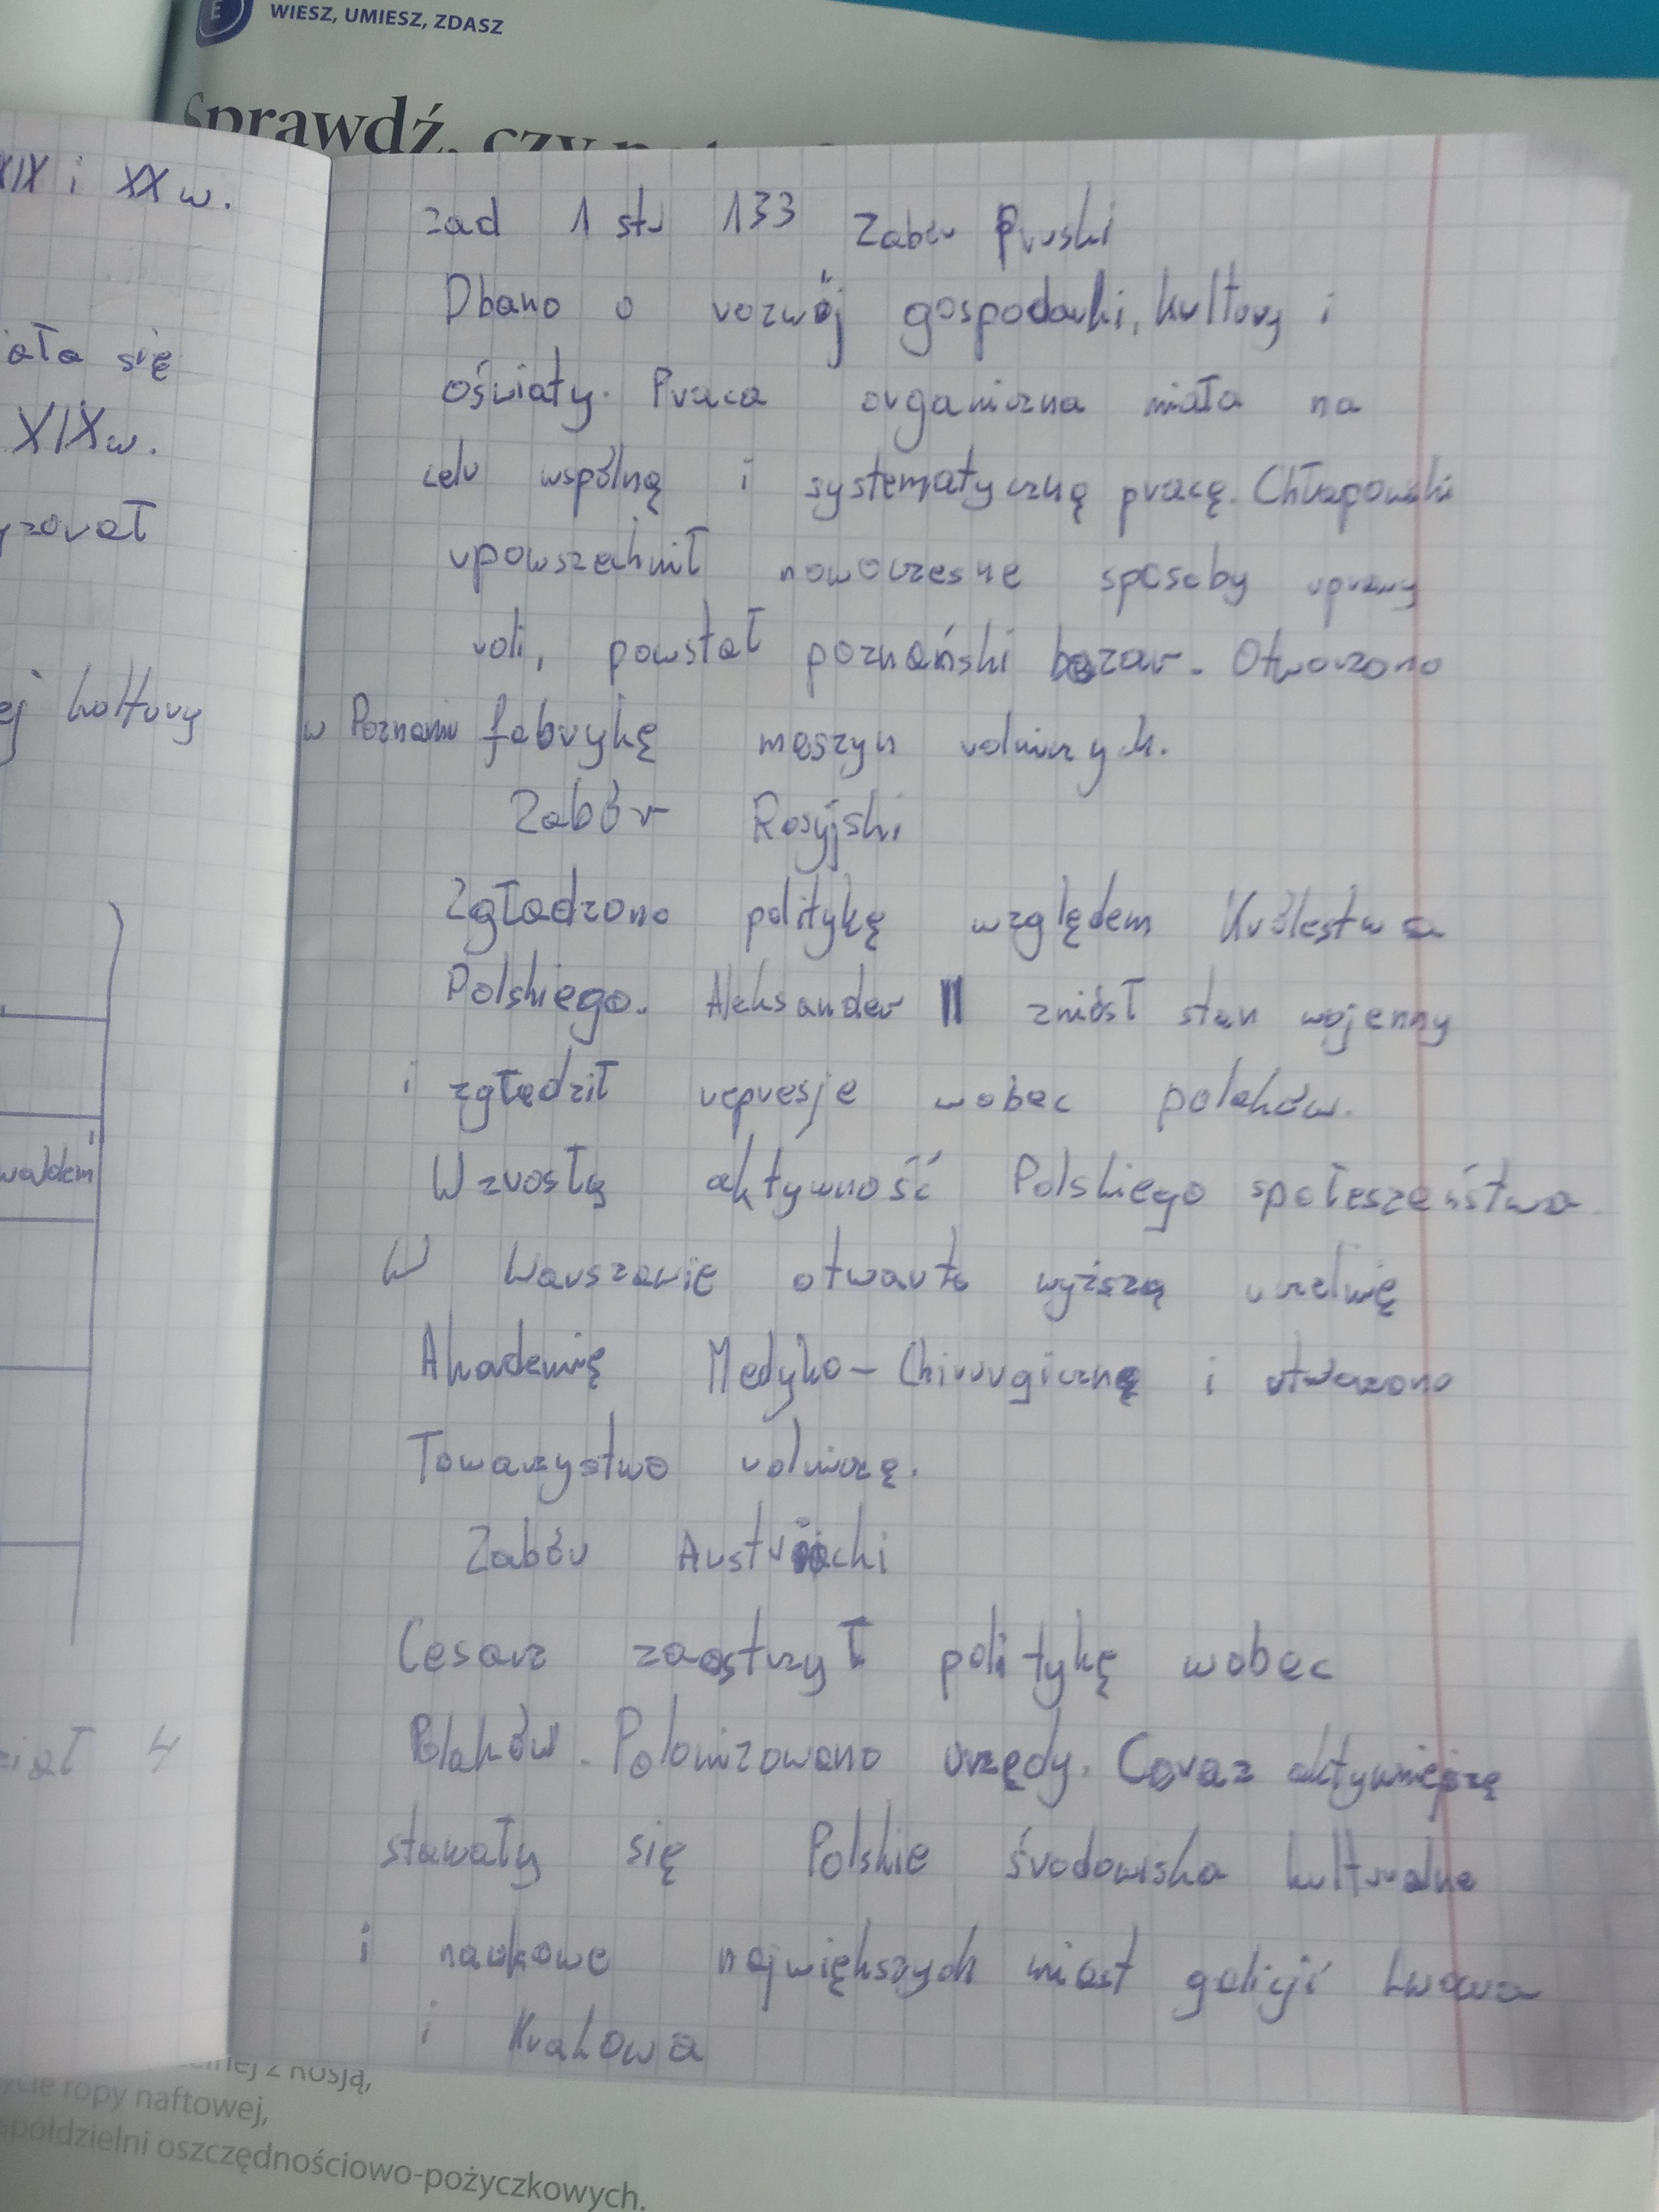 WIESZ, UMIESZ, ZDASZ
Sprawdź, czy
XIX i XX w.
ała się
XIXw.
ej kultury
4
zad 1 str 133 Zabór Pruski
Dbano o rozwój gospodarki, kultury i
oświaty. Praca organiczna miała na
celu wspólną i systematyczną pracę. Chłapowski
upowszechnił nowoczesne sposoby uprawy
roli, powstał poznański bazar. Otworzono
w Poznaniu fabrykę maszyn rolniczych.
Zabór Rosyjski
Zgładzono politykę względem Królestwa
Polskiego. Aleksander II zniósł stan wojenny
i zgładził represje wobec polaków.
Wzrosły aktywność Polskiego społeszeństwa
W Warszawie otwarto wyższą uczelnię
Akademię Medyko-Chirurgiczną i utworzono
Towarzystwo rolniczę.
Zabór Austriacki
Cesarz zaostrzył politykę wobec
Polaków. Polonizowano urzędy. Coraz aktywniejszę
stawały się Polskie środowiska kulturalne
i naukowe największych miast galicji Lwowa
i Krakowa
z Rosją,
ycie ropy naftowej,
spółdzielni oszczędnościowo-pożyczkowych.